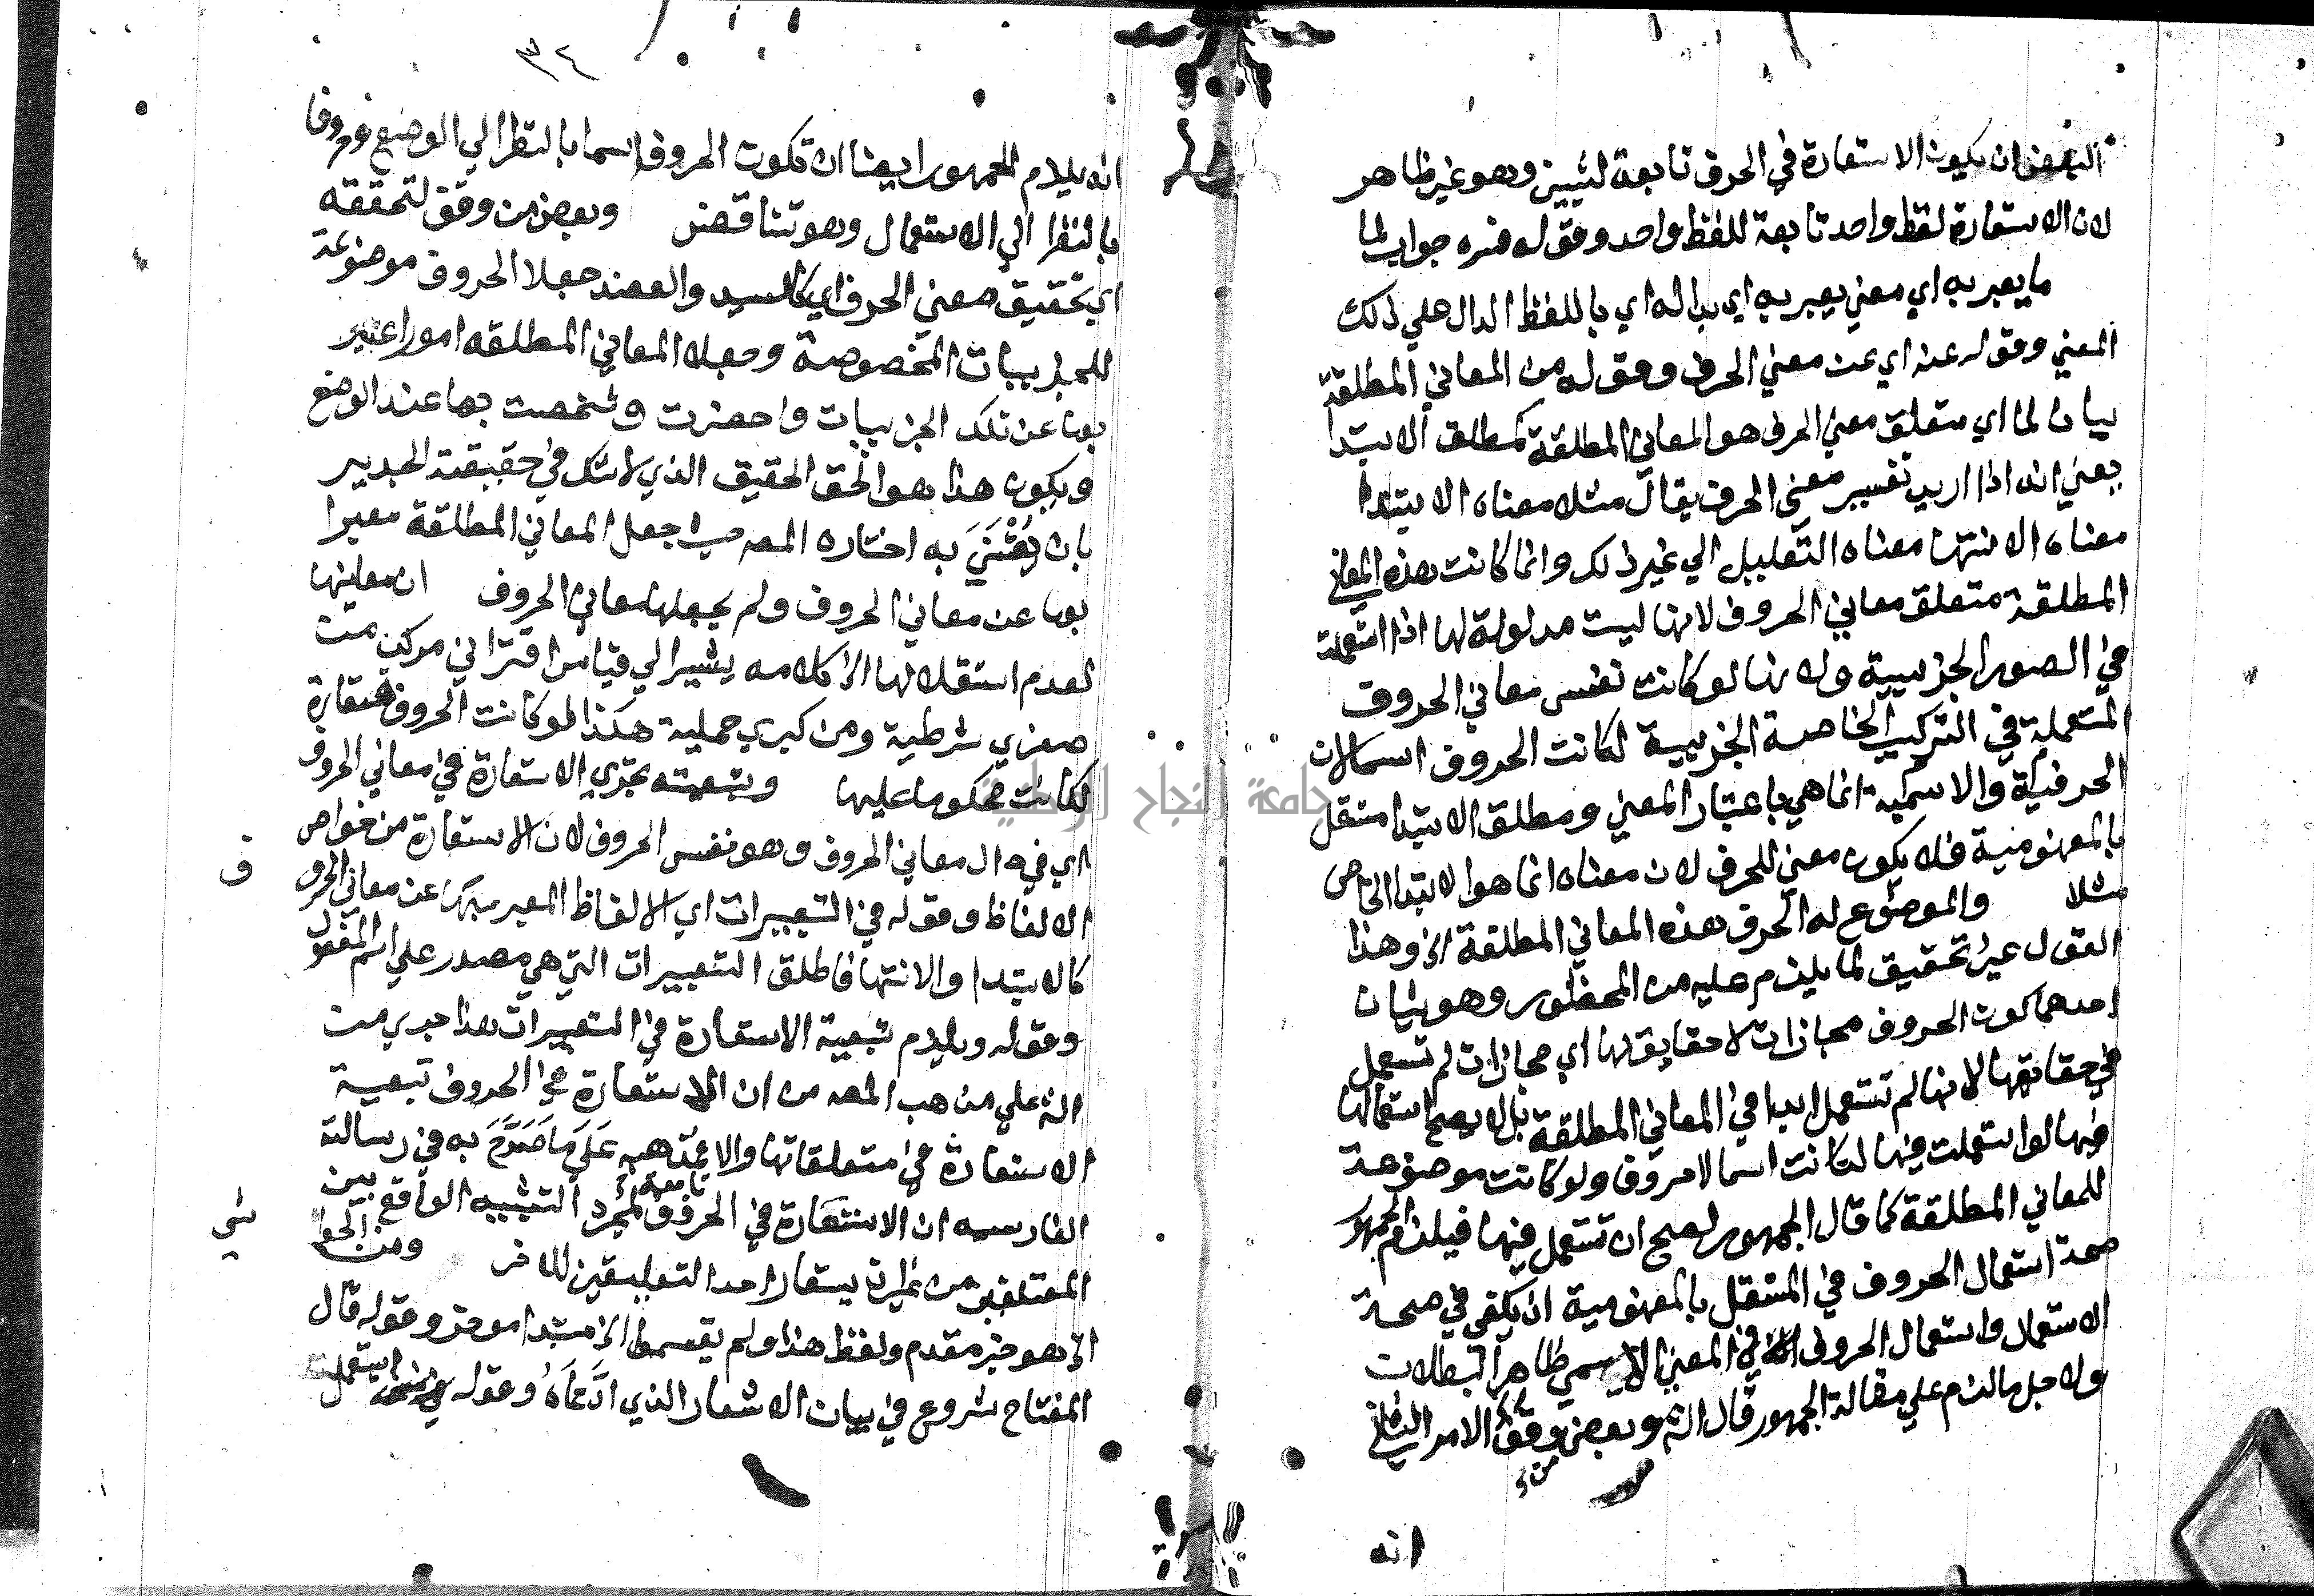 البعض ان يكون الاستعارة في الحرف تابعة لشيين وهو غير ظاهر
لان الاستعارة لفظ واحد تابعة للفظ واحد وقوله فسره جواب لما
ما يعبر به اي معني يعبر به اي بداله اي باللفظ الدال علي ذلك
المعني وقوله عنه اي عن معني الحرف وقوله من المعاني المطلقة
بيان لما اي متعلق معني الحرف هو المعاني المطلقة كمطلق الابتدا
بمعني انه اذا اريد تفسير معني الحرف يقال مثلا معناه الابتدا
معناه الانتها معناه التعليل الي غير ذلك وانما كانت هذه المعاني
المطلقة متعلق معاني الحروف لانها ليست مدلولة لها اذا استعملت
في الصور الجزيية ولانها لو كانت نفس معاني الحروف
المستعملة في التركيب الخاصة الجزيية لكانت الحروف اسما لان
الحرفية والاسمية انما هي باعتبار المعني ومطلق الابتدا مستقل
بالمفهومية فلا يكون معني للحرف لان معناه انما هو الابتدا الخاص
مثلا والموضوع له الحرف هذه المعاني المطلقة الخ وهذا
القول غير تحقيق لما يلزم عليه من المحظور وهو شيان
احدهما كون الحروف مجازات لا حقايق لها اي مجازات لم تستعمل
في حقائقها لانها لم تستعمل ابدا في المعاني المطلقة بل لا يصح استعمالها
فيها لو استعملت فيها لكانت اسما لا حروف ولو كانت موضوعة
للمعاني المطلقة كما قال الجمهور لصح ان تستعمل فيها فيلزم الجمهور
صحة استعمال الحروف في المستقل بالمفهومية اذ يكفي في صحة
الاستعمال واستعمال الحروف في المعني الاسمي ظاهر البطلان
ولاجل ما لزم علي مقالة الجمهور قال الش وبعض من وفق الامر الثاني
انه
٣٤
انه يلزم الجمهور ايضا ان تكون الحروف اسما بالنظر الي الوضع وحروفا
بالنظر الي الاستعمال وهو تناقض وبعض من وفق لتحققه
اي تحقيق معني الحرف اي كالسيد والعضد جعلا الحروف موضوعة
للجزييات المخصوصة وجعلا المعاني المطلقة امورا عبر
بها عن تلك الجزييات واحضرت وشخصت بها عند الوضع
ويكون هذا هو الحق الحقيق الذي لا شك في حقيقته الجدير
بان يُعْتَنَى به اختاره المص حيث جعل المعاني المطلقة معبرا
بها عن معاني الحروف ولم يجعلها معاني الحروف ان معاينها
لعدم استقلالها الخ كلامه يشير الي قياس اقتراني مركب من
صغري شرطية ومن كبري حملية هكذا لو كانت الحروف مستعارة
لكانت محكوما عليها وبتبعيته تجري الاستعارة في معاني الحروف
اي في دال معاني الحروف وهو نفس الحروف لان الاستعارة من خواص
الالفاظ وقوله في التعبيرات اي الالفاظ المعبر بها عن معاني الحروف
كالابتدا والانتها فاطلق التعبيرات التي هي مصدر علي اسم المفعول
وقوله ويلزم تبعية الاستعارة في التعبيرات هذا جري من
الش علي مذهب المص من ان الاستعارة في الحروف تبعية
الاستعارة في متعلقاتها والا فمذهبه عَلَى ما صَرَّحَ به في رسالته
الفارسيه ان الاستعارة في الحروف تابعة لمجرد التشبيه الواقع بين
المتعلقين من غير ان يستعار احد التعليقين للاخر ومن الجوا
الخ هو خبر مقدم ولفظ هذا ولم يقسموا الخ مبتدا موخر وقوله قال
المفتاح شروع في بيان الاشعار الذي ادَّعَاهُ وقوله استعمل